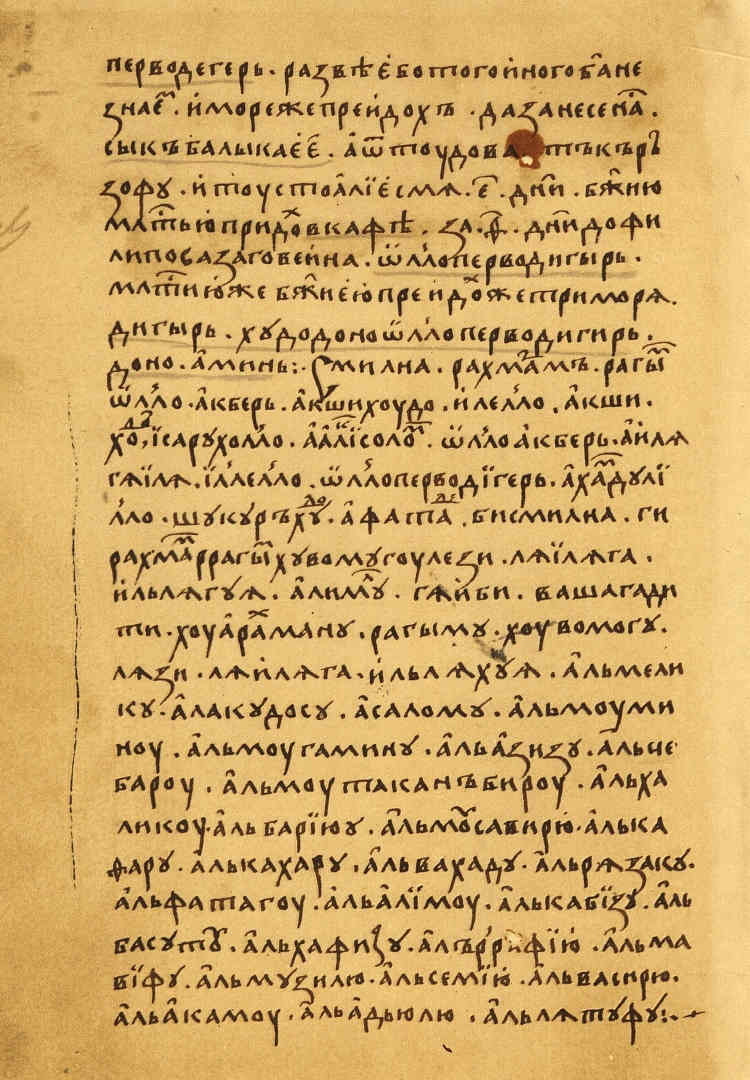 перводегерь. развѣ е бо того иного б҃а не
знаеⷨ. и море же преидохъ. да занесе наⷭ
сыкъ балыкаеѐ. а ѿтоудова тъкъръ
зофу. и тоу стоали есмя. е҃. дн҃и. бж҃ию
млⷭ҇тью придоⷯ в кафѣ. за. ѳ҃. дн҃и до фи
липова заговеина. ѡлло перводигырь.
млⷭ҇тию же бж҃иею преидоⷯ же три моря.
дигырь. худо доно ѡлло перводигирь.
доно. аминь:· смилна. рахмаⷨамъ. рагыⷨ
ѡлло. акберь. акши хоудо. илелло. акши.
хоⷣо, їса рухолло. аалїⷦ҇солоⷨ. ѡлло акберь. аиля
гяїля. їллелло. ѡлло перводїгерь. ахаⷨдулї
лло. шукуръ хуⷣо. афатаⷣ. бисмилна. ги
рахмаⷨ ррагыⷨ хувомугоулези. ляїляга.
ильлягуя. алимуⷧ. гяиби. вашагади
ти. хоуарахⷨаману. рагыму. хоувомогу.
лязи. ляиляга. ильляхуя. альмели
ку. алакудосу. асалому. альмоуми
ноу. альмоугамину. альазизу. альче
бароу. альмоутаканъбироу. альха
ликоу. альбарїюу. альмоусавирю. алька
ѳару. алькахару. альвахаду. альрязаку.
альфатагоу. альалїмоу. алькабїзу. аль
басуту. альхафизу. алъррафїю. альма
вїфу. альмузилю. альсемїю. альвасирю.
альакамоу. альадьюлю. альлятуфу:·